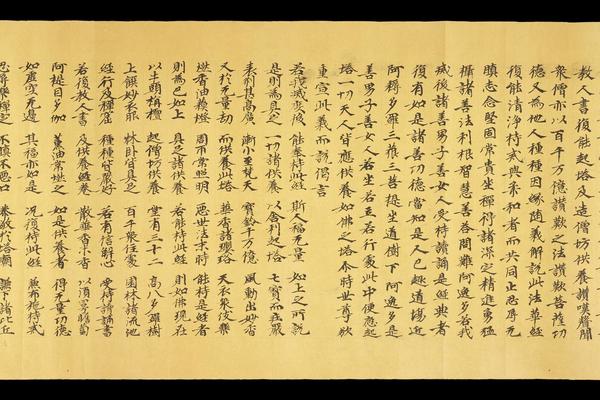 教人書復能起塔及造僧坊供養讚嘆聲聞
衆僧亦以百千万億讚歎之法讚歎菩薩功
德又為他人種種因緣隨義解說此法華經
復能清淨持戒與柔和者而共同止忍辱无
瞋志念堅固常貴坐禪得諸深定精進勇猛
攝諸善法利根智慧善荅問難阿逸多若我
滅後諸善男子善女人受持讀誦是經典者
復有如是諸善功德當知是人已趣道場近
阿耨多羅三藐三菩提坐道樹下阿逸多是
善男子善女人若坐若立若行處此中便應起
塔一切天人皆應供養如佛之塔尒時世尊欲
重宣此義而說偈言
若我滅度後 能奉持此經 斯人福无量 如上之所說
是則為具足 一切諸供養 以舍利起塔 七寶而莊嚴
表刹甚高廣 漸小至梵天 寶鈴千万億 風動出妙音
又於无量劫 而供養此塔 華香諸瓔珞 天衣衆伎樂
燃香油蘇燈 周帀常照明 惡世法末時 能持是經者
則為已如上 具足諸供養 若能持此經 則如佛現在
以牛頭栴檀 起僧坊供養 堂有三十二 高八多羅樹
上饌妙衣服 牀卧皆具足 百千衆住處 園林諸流池
經行及禪窟 種種皆嚴好 若有信解心 受持讀誦書
若復教人書 及供養經卷 散華香末香 以須曼瞻蔔
阿提目多伽 薰油常燃之 如是供養者 得无量功德
如虛空无邊 其福亦如是 況復持此經 兼布施持戒
忍辱樂禪定 不瞋不惡口 恭敬於塔廟 謙下諸比丘